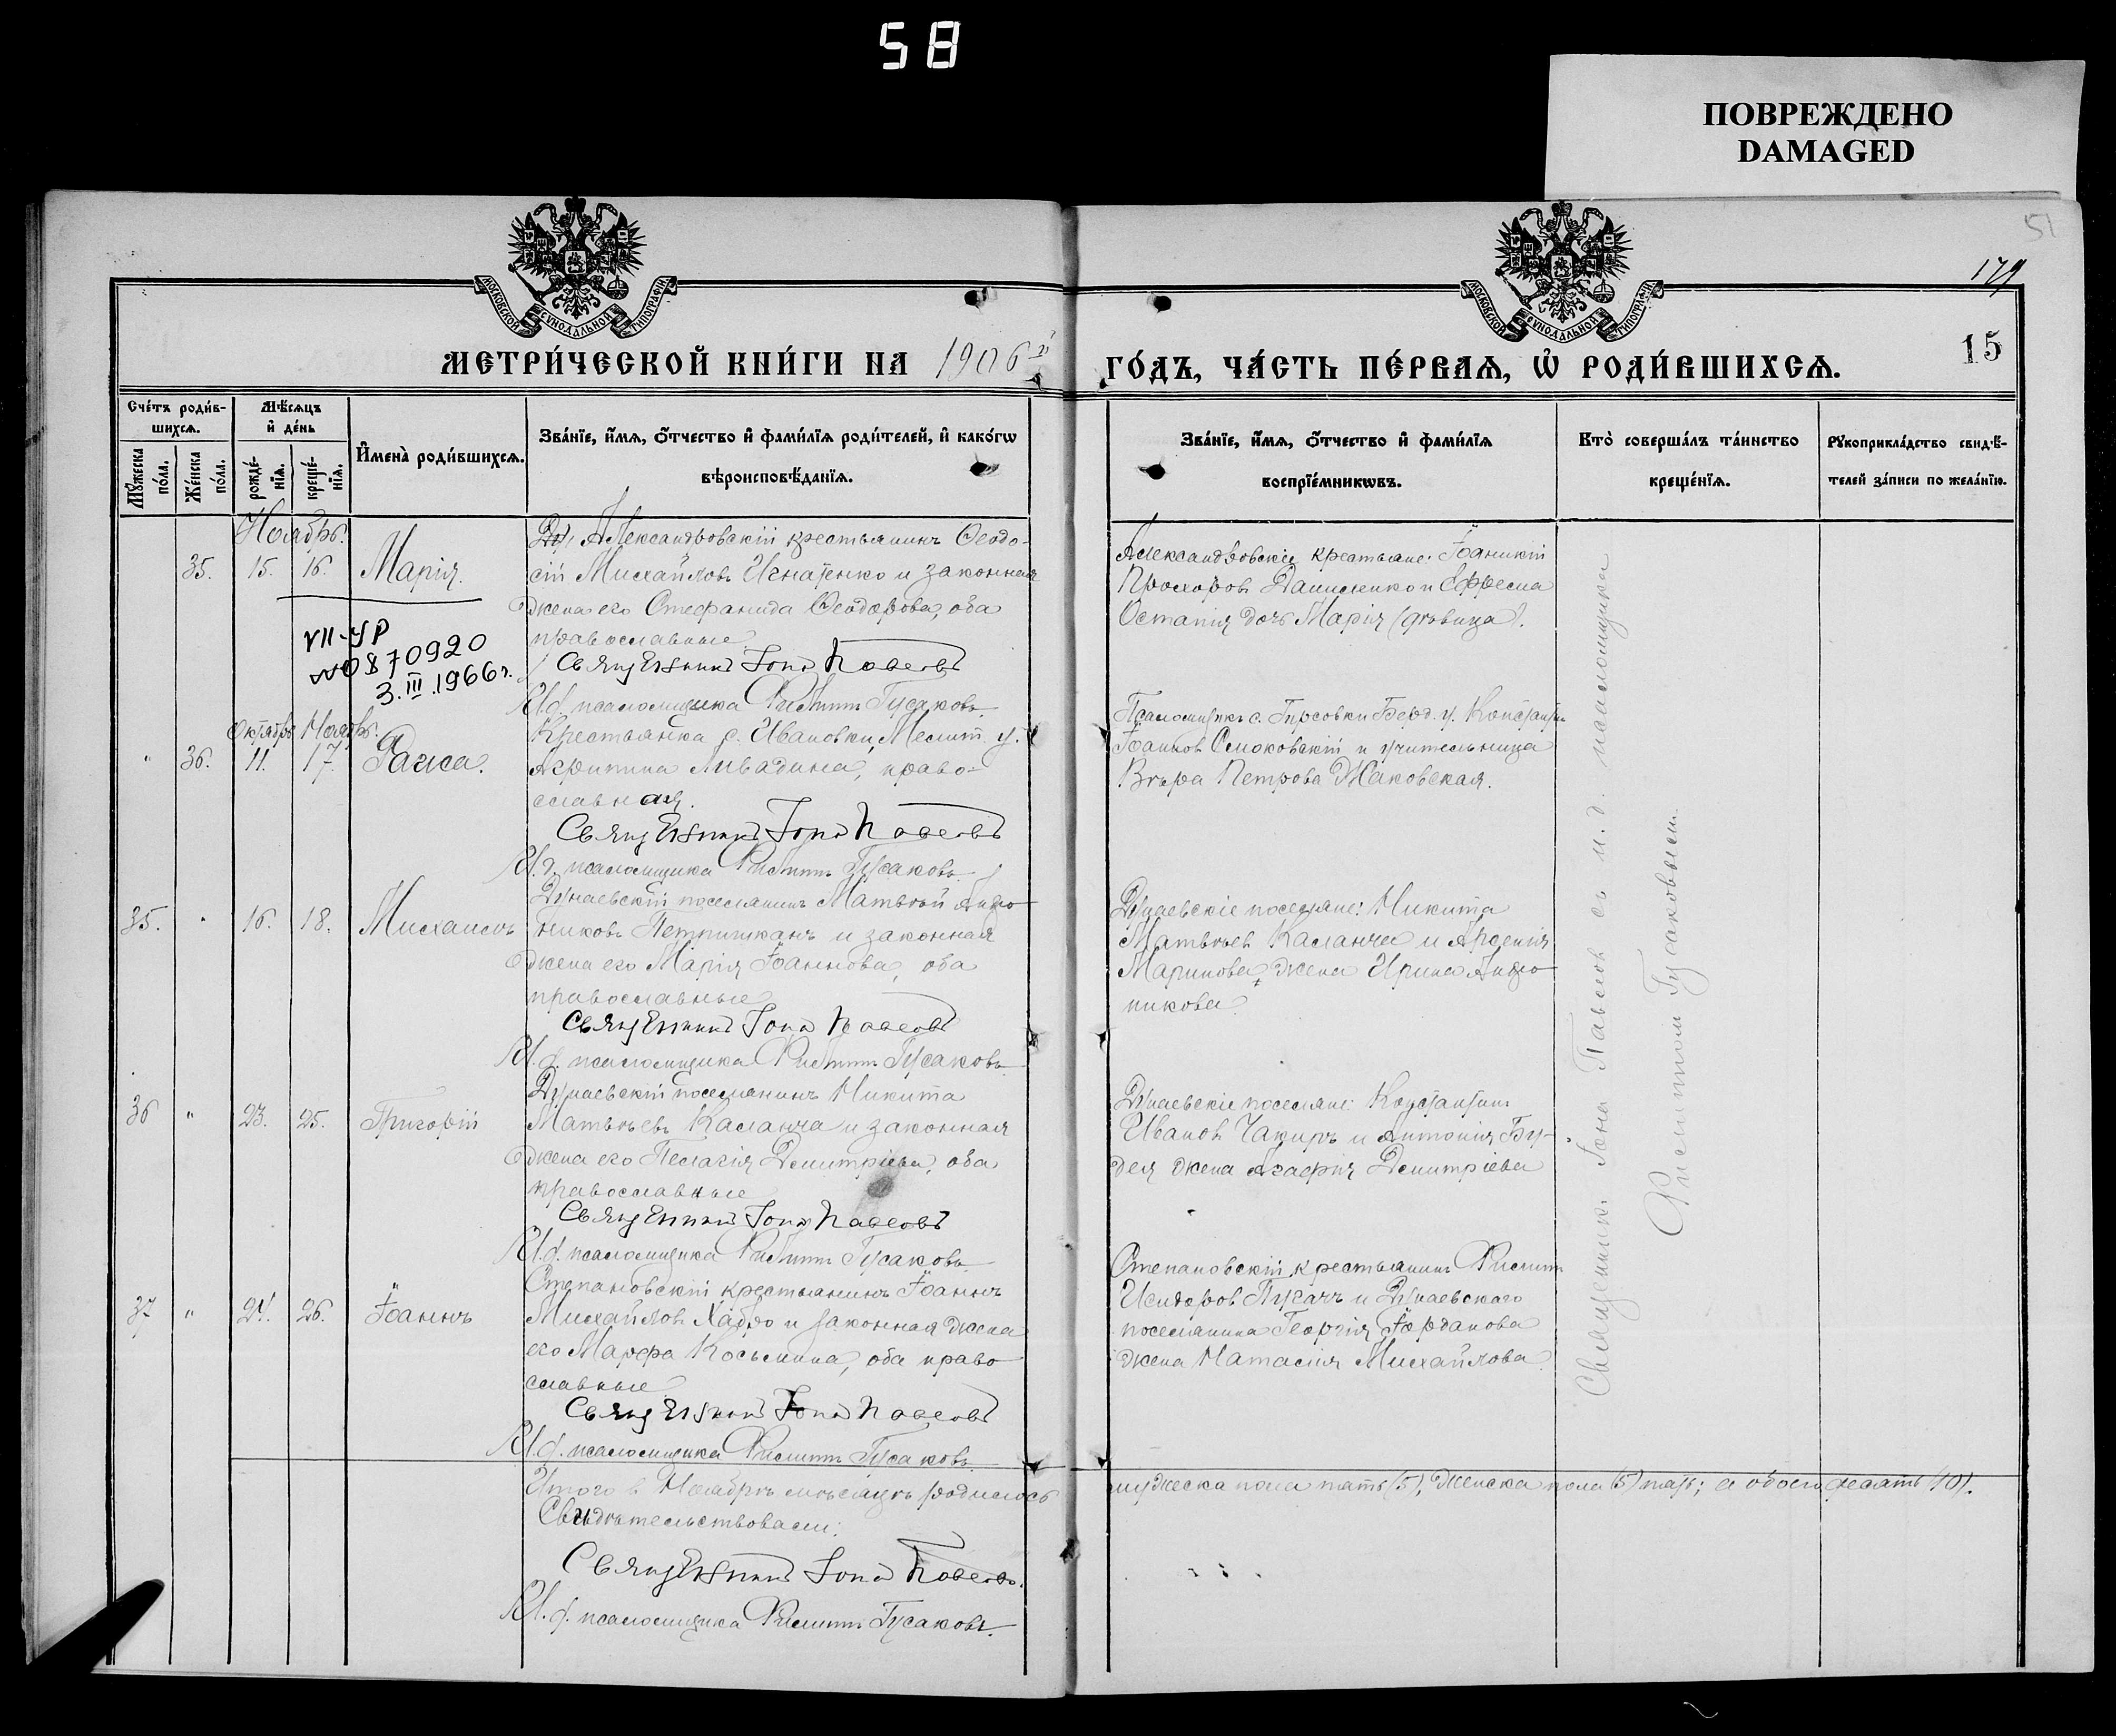 58
ПОВРЕЖДЕНО
DAMAGED
51
179
15
МОСКОВСКОЙ СѴНОДАЛЬНОЙ ТИПОГРАФІИ
МОСКОВСКОЙ СѴНОДАЛЬНОЙ ТИПОГРАФІИ
МЕТРИ́ЧЕСКОЙ КНИ́ГИ НА 1906й
ГО́ДЪ, ЧА́СТЬ ПЕ́РВАЯ, Ѡ҆ РОДИ́ВШИХСЯ.
Сче́тъ роди́в-
шихся.
Мѣ́сяцъ
и҆ де́нь
Мꙋ́жеска
по́ла.
Же́нска
по́ла.
рожде́-
нїя.
креще́-
нїя.
И҆мена̀ роди́вшихся.
Зва́нїе, и҆́мя, ѻ҆́тчество и҆ фами́лїя роди́телей, и҆ како́гѡ
вѣроисповѣ́данїя.
Зва́нїе, и҆́мя, ѻ҆́тчество и҆ фами́лїя
воспрїе́мникѡвъ.
Кто̀ соверша́лъ та́инство
креще́нїя.
Рꙋкоприкла́дство свидѣ́-
телей за́писи по жела́нїю.
Ноябрь.
35. 15. 16. Марія.
Александровскій крестьянинъ Ѳеодо-
сій Михайловъ Игнатенко и законная
жена его Стефанида Ѳеодорова, оба
православные
Священникъ Іона Павловъ
И. д. псаломщика Филиппъ Гусаковъ
Александровскіе крестьяне: Іоанникій
Прохоровъ Данисенко и Ефрема
Остапія дочь Марія (дѣвица).
VII-УР
№0870920
3.III.1966г.
Октябрь Ноябрь.
" 36. 11. 17. Раиса.
Крестьянка с. Ивановки, Мелит. у.
Агрипина Ливадина, право-
славная.
Священникъ Іона Павловъ
И. д. псаломщика Филиппъ Гусаковъ
Псаломщикъ с. Гирсовки Берд. у. Константинъ
Іоанновъ Смоковскій и учительница
Вѣра Петрова Жаковская.
35. " 16. 18. Михаилъ
Дунаевскій поселянинъ Матвѣй Андро-
никовъ Петришканъ и законная
жена его Марія Іоаннова, оба
православные
Священникъ Іона Павловъ
И. д. псаломщика Филиппъ Гусаковъ
Дунаевскіе поселяне: Никита
Матвѣевъ Каланча и Арсенія
Маринова жена Ирина Андро-
никова.
36 " 23. 25. Григорій
Дунаевскій поселянинъ Никита
Матвѣевъ Каланча и законная
жена его Пелагія Димитріева, оба
православные
Священникъ Іона Павловъ
И. д. псаломщика Филиппъ Гусаковъ
Дунаевскіе поселяне: Константинъ
Ивановъ Чакиръ и Антонія Бу-
дея жена Агафія Димитріева
37 " 24. 26. Іоаннъ
Степановскій крестьянинъ Іоаннъ
Михайловъ Хабло и законная жена
его Марфа Косьмина, оба право-
славные
Священникъ Іона Павловъ
И. д. псаломщика Филиппъ Гусаковъ
Степановскій крестьянинъ Филиппъ
Исидоровъ Пугачъ и Дунаевскаго
поселянина Георгія Іорданова
жена Наталія Михайлова.
Священникъ Іона Павловъ съ и. д. псаломщика
Филиппомъ Гусаковымъ.
Итого в Ноябрѣ мѣсяцѣ родилось мужеска пола пять (5), женска пола (5) пять; а обоего десять (10).
Свидѣтельствовали:
Священникъ Іона Павловъ.
И. д. псаломщика Филиппъ Гусаковъ.